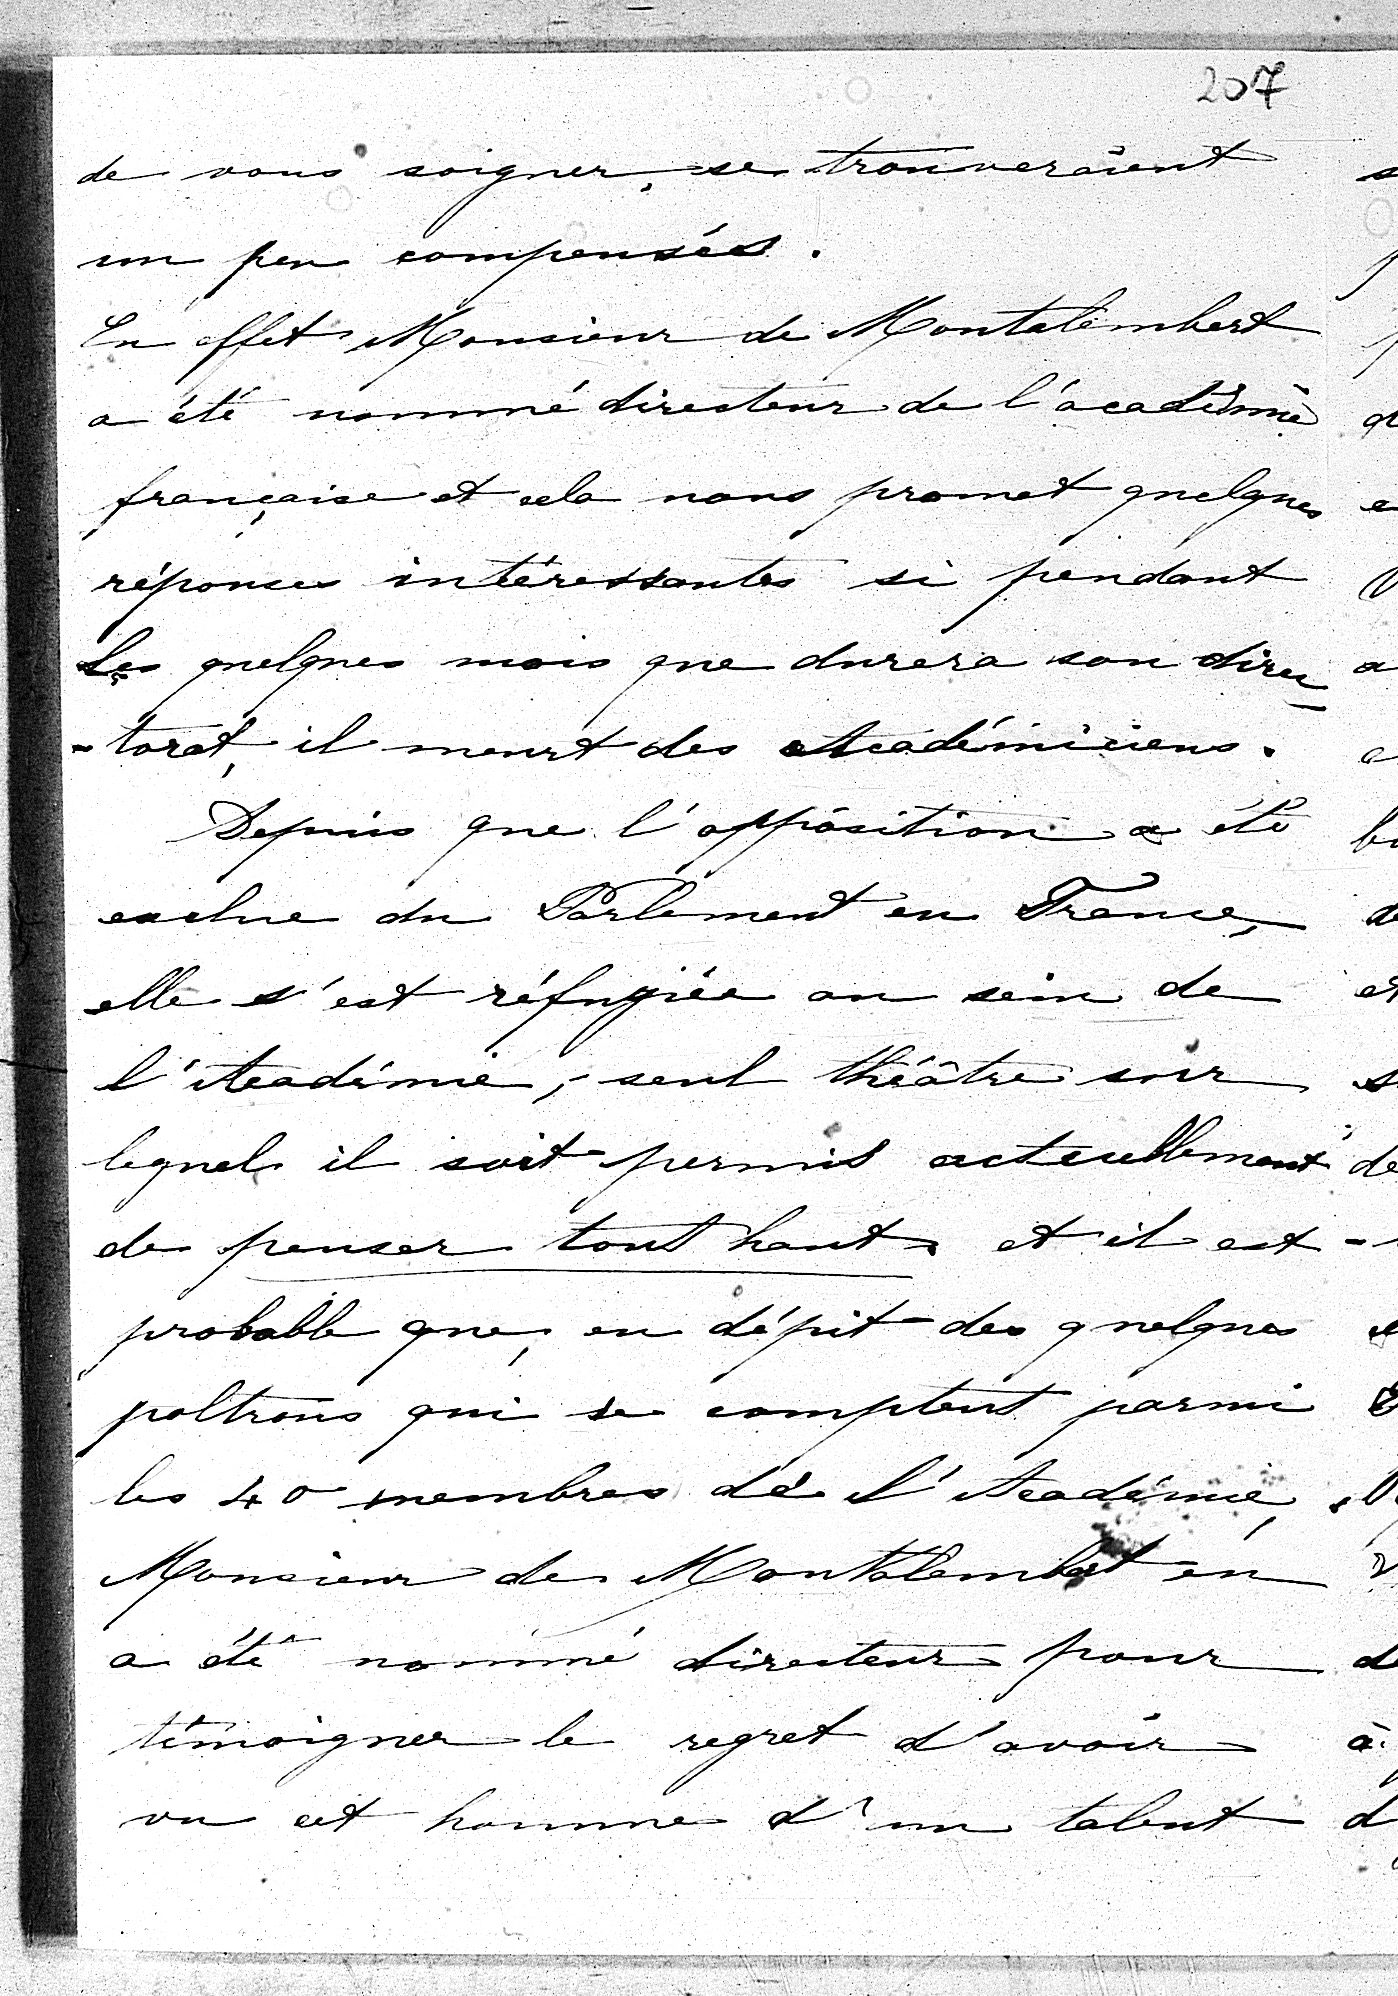 207
de vous soigner, se trouveraient
un peu compensés.
En effet Monsieur de Montalembert
a été nommé directeur de l'académie
française et cela nous promet quelques
réponses intéressantes si pendant
les quelques mois que durera son direc
-torat, il meurt des Académiciens.
Depuis que l'opposition a été
exclue du Parlement en France,
elle s'est réfugiée au sein de
l'Académie, seul théâtre sur
lequel il soit permis actuellement
de penser tout haut et il est
probable que, en dépit des quelques
poltrons qui se comptent parmi
les 40 membres de l'Académie,
Monsieur de Montalembert en
a été nommé directeur pour
témoigner le regret d'avoir
vu cet homme d'un talent